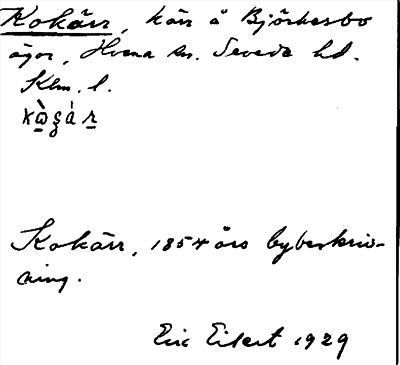 Kokärr, kärr å Björkesbo
ägor, Hvena sn. Sevede hd.
Klm. l.
Kokärr, 1854 års bybeskriv-
ning.
Eric Eilert 1929